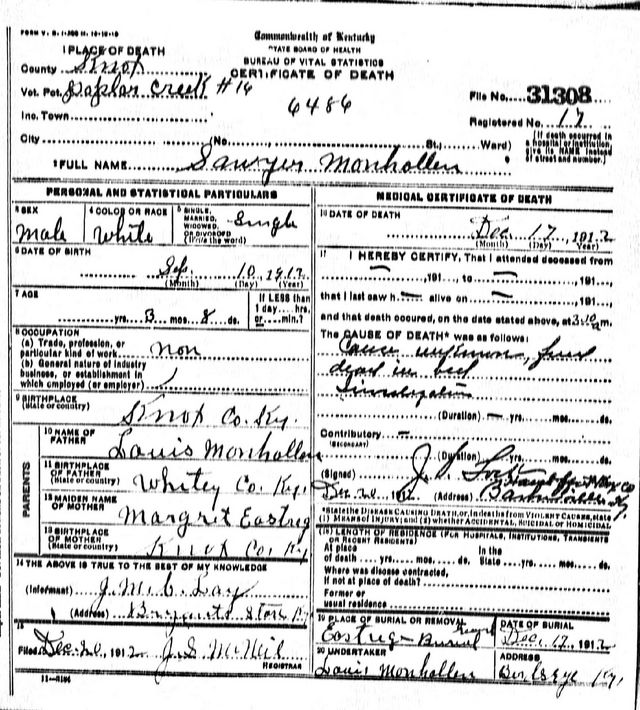 FORM V. S. 1-
Commonwealth of Kentucky
STATE BOARD OF HEALTH
BUREAU OF VITAL STATISTICS
CERTIFICATE OF DEATH
1 PLACE OF DEATH
County Knox
Vot. Pct. Poplar Creek #16
6486
File No. 31308
Inc. Town
Registered No. 17
City (No. St.; Ward)
[If death occurred in a hospital or institution, give its NAME instead of street and number.]
2 FULL NAME Sawyer Monhollen
PERSONAL AND STATISTICAL PARTICULARS
3 SEX Male
4 COLOR OR RACE White
5 SINGLE, MARRIED, WIDOWED, OR DIVORCED (Write the word) Single
6 DATE OF BIRTH
Sep. 10, 1912
(Month) (Day) (Year)
7 AGE
yrs. 3 mos. 8 ds.
If LESS than 1 day hrs. or min.?
8 OCCUPATION
(a) Trade, profession, or particular kind of work non
(b) General nature of industry business, or establishment in which employed (or employer)
9 BIRTHPLACE (State or country)
Knox Co. Ky.
PARENTS
10 NAME OF FATHER Louis Monhollen
11 BIRTHPLACE OF FATHER (State or country) Whitey Co. Ky.
12 MAIDEN NAME OF MOTHER Margrit
13 BIRTHPLACE OF MOTHER (State or country) Knox Co. Ky
14 THE ABOVE IS TRUE TO THE BEST OF MY KNOWLEDGE
(Informant) J. M. C. Lay
(Address) Store Ky
15
Filed Dec-20, 1912 J. S. McNeil
REGISTRAR
MEDICAL CERTIFICATE OF DEATH
16 DATE OF DEATH
Dec. 17, 1912
(Month) (Day) (Year)
17 I HEREBY CERTIFY, That I attended deceased from
—, 191..., to —, 191...,
that I last saw h— alive on —, 191...,
and that death occured, on the date stated above, at 3.10 m.
The CAUSE OF DEATH* was as follows:
Cause unknown, found
dead in bed
(Duration) — yrs. mos. ds.
Contributory —
(SECONDARY)
(Duration) yrs. mos. ds.
(Signed) J. S.
Dec. 20, 1912 (Address)
*State the DISEASE CAUSING DEATH, or, in deaths from VIOLENT CAUSES, state
(1) MEANS OF INJURY; and (2) whether ACCIDENTAL, SUICIDAL or HOMICIDAL.
18 LENGTH OF RESIDENCE (FOR HOSPITALS, INSTITUTIONS, TRANSIENTS
OR RECENT RESIDENTS)
At place of death yrs. mos. ds. In the State yrs. mos. ds.
Where was disease contracted,
If not at place of death?
Former or
usual residence
19 PLACE OF BURIAL OR REMOVAL
DATE OF BURIAL
Dec. 17, 1912
20 UNDERTAKER
Louis Monhollen
ADDRESS
Ky.